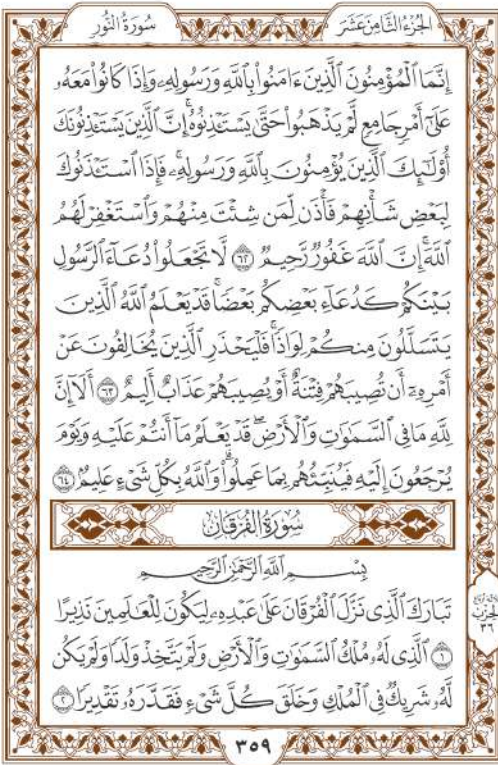 الجُزْءُ الثَّامِنَ عَشَرَ سُورَةُ النُّورِ
إِنَّمَا ٱلْمُؤْمِنُونَ ٱلَّذِينَ ءَامَنُوا۟ بِٱللَّهِ وَرَسُولِهِۦ وَإِذَا كَانُوا۟ مَعَهُۥ
عَلَىٰٓ أَمْرٍ جَامِعٍ لَّمْ يَذْهَبُوا۟ حَتَّىٰ يَسْتَـْٔذِنُوهُۚ إِنَّ ٱلَّذِينَ يَسْتَـْٔذِنُونَكَ
أُو۟لَـٰٓئِكَ ٱلَّذِينَ يُؤْمِنُونَ بِٱللَّهِ وَرَسُولِهِۦۚ فَإِذَا ٱسْتَـْٔذَنُوكَ
لِبَعْضِ شَأْنِهِمْ فَأْذَن لِّمَن شِئْتَ مِنْهُمْ وَٱسْتَغْفِرْ لَهُمُ
ٱللَّهَۚ إِنَّ ٱللَّهَ غَفُورٌ رَّحِيمٌ ٦٢ لَّا تَجْعَلُوا۟ دُعَآءَ ٱلرَّسُولِ
بَيْنَكُمْ كَدُعَآءِ بَعْضِكُم بَعْضًاۚ قَدْ يَعْلَمُ ٱللَّهُ ٱلَّذِينَ
يَتَسَلَّلُونَ مِنكُمْ لِوَاذًاۚ فَلْيَحْذَرِ ٱلَّذِينَ يُخَالِفُونَ عَنْ
أَمْرِهِۦٓ أَن تُصِيبَهُمْ فِتْنَةٌ أَوْ يُصِيبَهُمْ عَذَابٌ أَلِيمٌ ٦٣ أَلَآ إِنَّ
لِلَّهِ مَا فِى ٱلسَّمَـٰوَٰتِ وَٱلْأَرْضِۖ قَدْ يَعْلَمُ مَآ أَنتُمْ عَلَيْهِ وَيَوْمَ
يُرْجَعُونَ إِلَيْهِ فَيُنَبِّئُهُم بِمَا عَمِلُوا۟ۗ وَٱللَّهُ بِكُلِّ شَىْءٍ عَلِيمٌۢ ٦٤
سُورَةُ الفُرْقَانِ
بِسْمِ ٱللَّهِ ٱلرَّحْمَـٰنِ ٱلرَّحِيمِ
تَبَارَكَ ٱلَّذِى نَزَّلَ ٱلْفُرْقَانَ عَلَىٰ عَبْدِهِۦ لِيَكُونَ لِلْعَـٰلَمِينَ نَذِيرًا
١ ٱلَّذِى لَهُۥ مُلْكُ ٱلسَّمَـٰوَٰتِ وَٱلْأَرْضِ وَلَمْ يَتَّخِذْ وَلَدًا وَلَمْ يَكُن
لَّهُۥ شَرِيكٌ فِى ٱلْمُلْكِ وَخَلَقَ كُلَّ شَىْءٍ فَقَدَّرَهُۥ تَقْدِيرًا ٢
الحِزْبُ
٣٦
٣٥٩